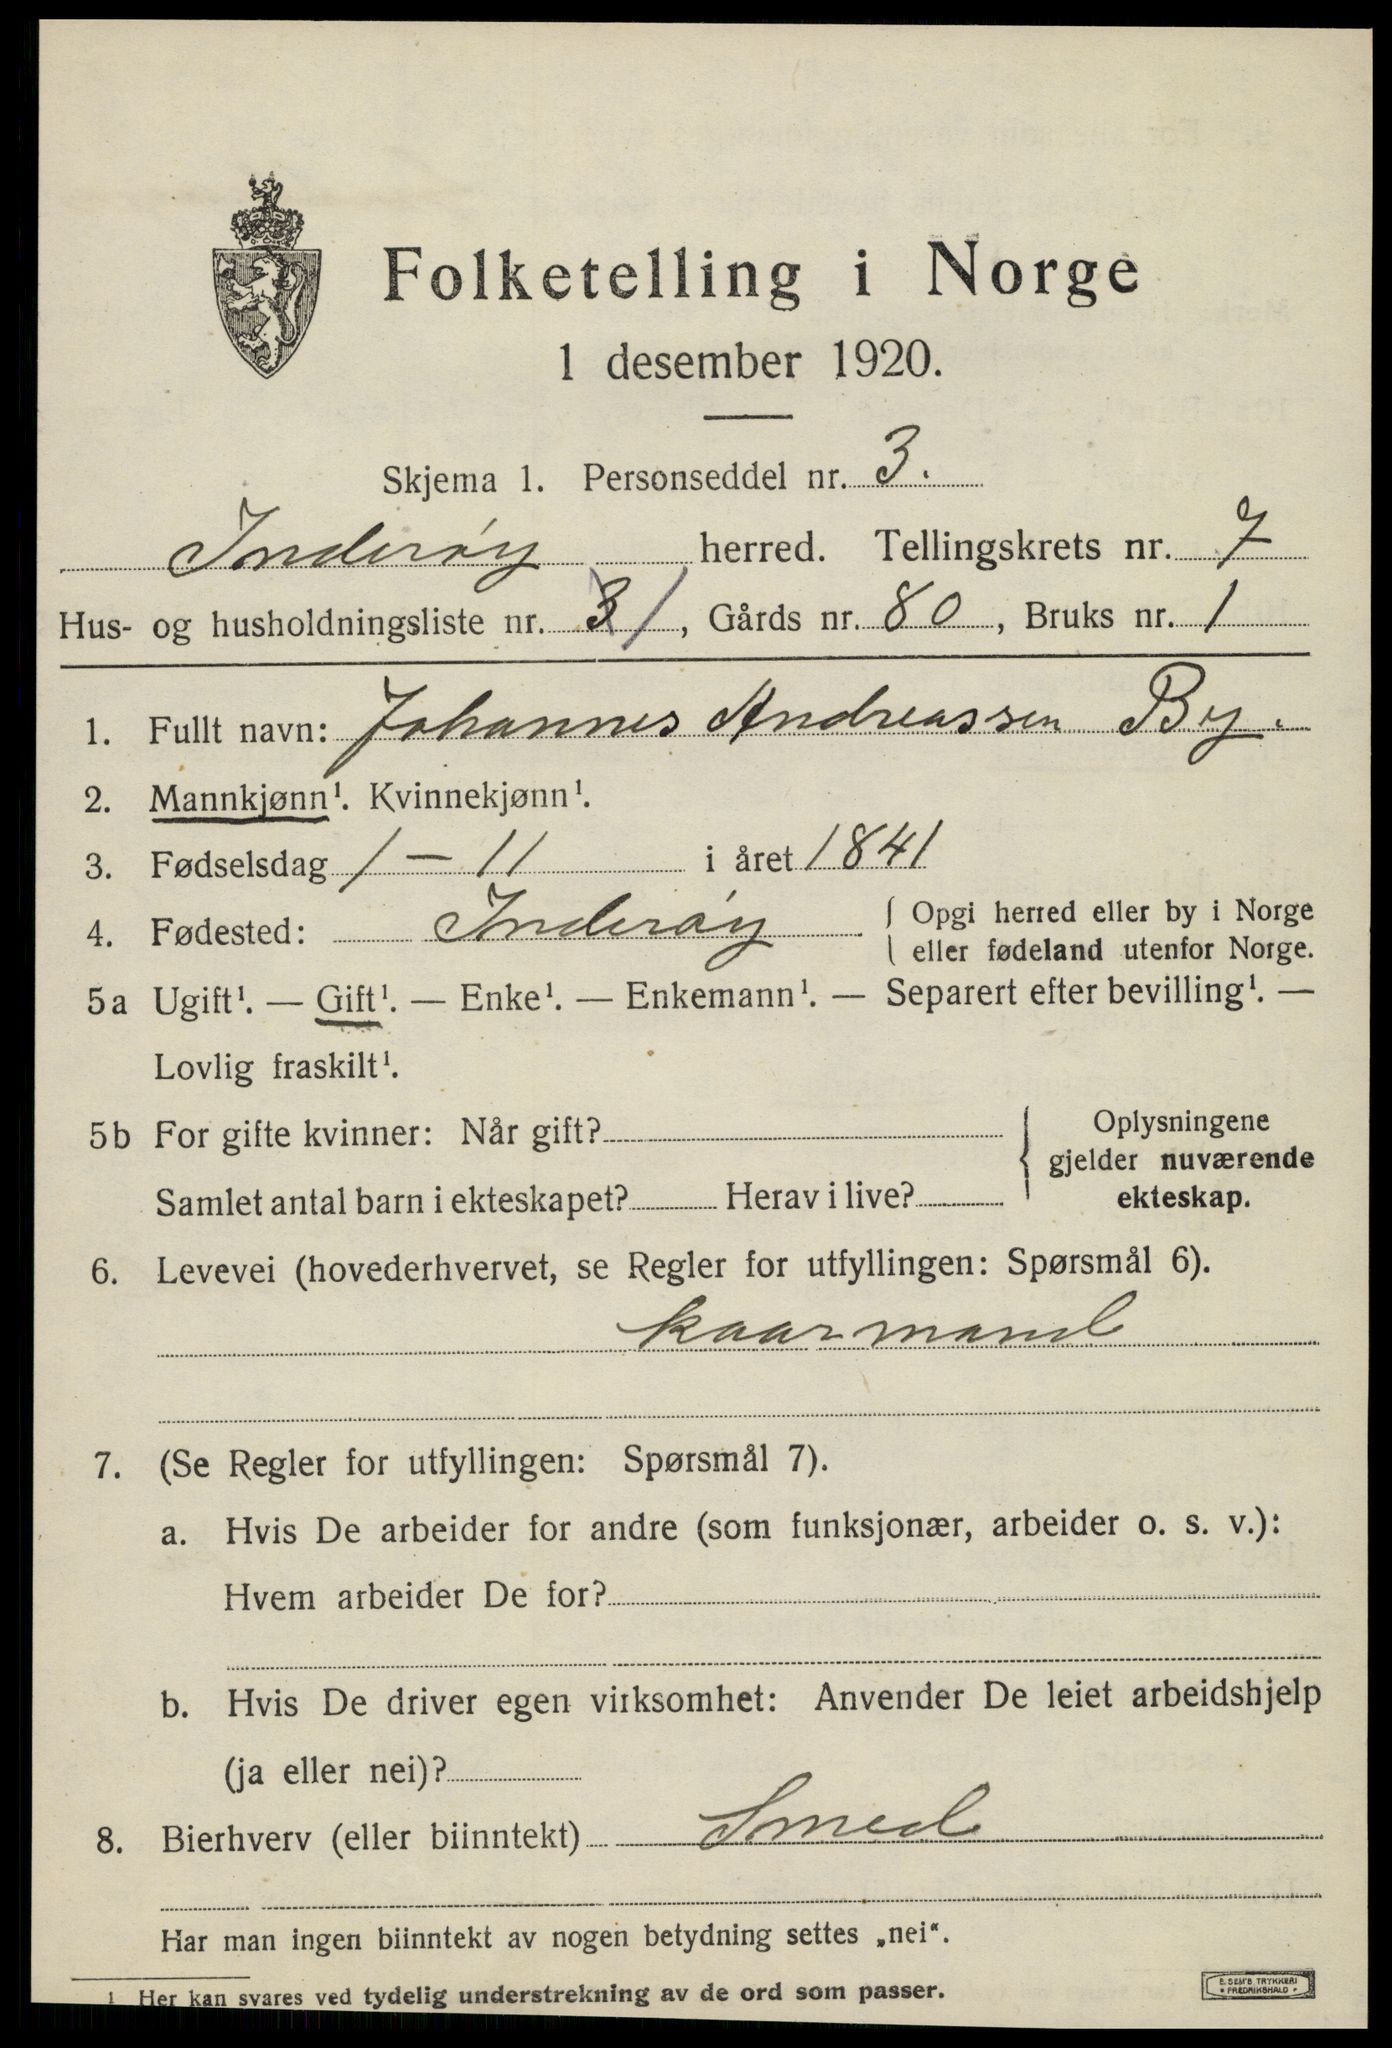 Folketelling i Norge
1 desember 1920.
Skjema 1. Personseddel nr. 3.
Inderøy herred. Tellingskrets nr. 7
Hus- og husholdningsliste nr. 31, Gårds nr. 80, Bruks nr. 1
1. Fullt navn: Johannes Andreassen By.
2. Mannkjønn¹. Kvinnekjønn¹.
3. Fødselsdag 1 – 11 i året 1841
4. Fødested: Inderøy { Opgi herred eller by i Norge
eller fødeland utenfor Norge.
5a Ugift¹. — Gift¹. — Enke¹. — Enkemann¹. — Separert efter bevilling¹. —
Lovlig fraskilt¹.
5b For gifte kvinner: Når gift? { Oplysningene
gjelder nuværende
Samlet antal barn i ekteskapet? Herav i live? ekteskap.
6. Levevei (hovederhvervet, se Regler for utfyllingen: Spørsmål 6).
kaarmand
7. (Se Regler for utfyllingen: Spørsmål 7).
a. Hvis De arbeider for andre (som funksjonær, arbeider o. s. v.):
Hvem arbeider De for?
b. Hvis De driver egen virksomhet: Anvender De leiet arbeidshjelp
(ja eller nei)?
8. Bierhverv (eller biinntekt) Smed
Har man ingen biinntekt av nogen betydning settes „nei“.
¹ Her kan svares ved tydelig understrekning av de ord som passer.
E. SEM'S TRYKKERI
• FREDRIKSHALD •